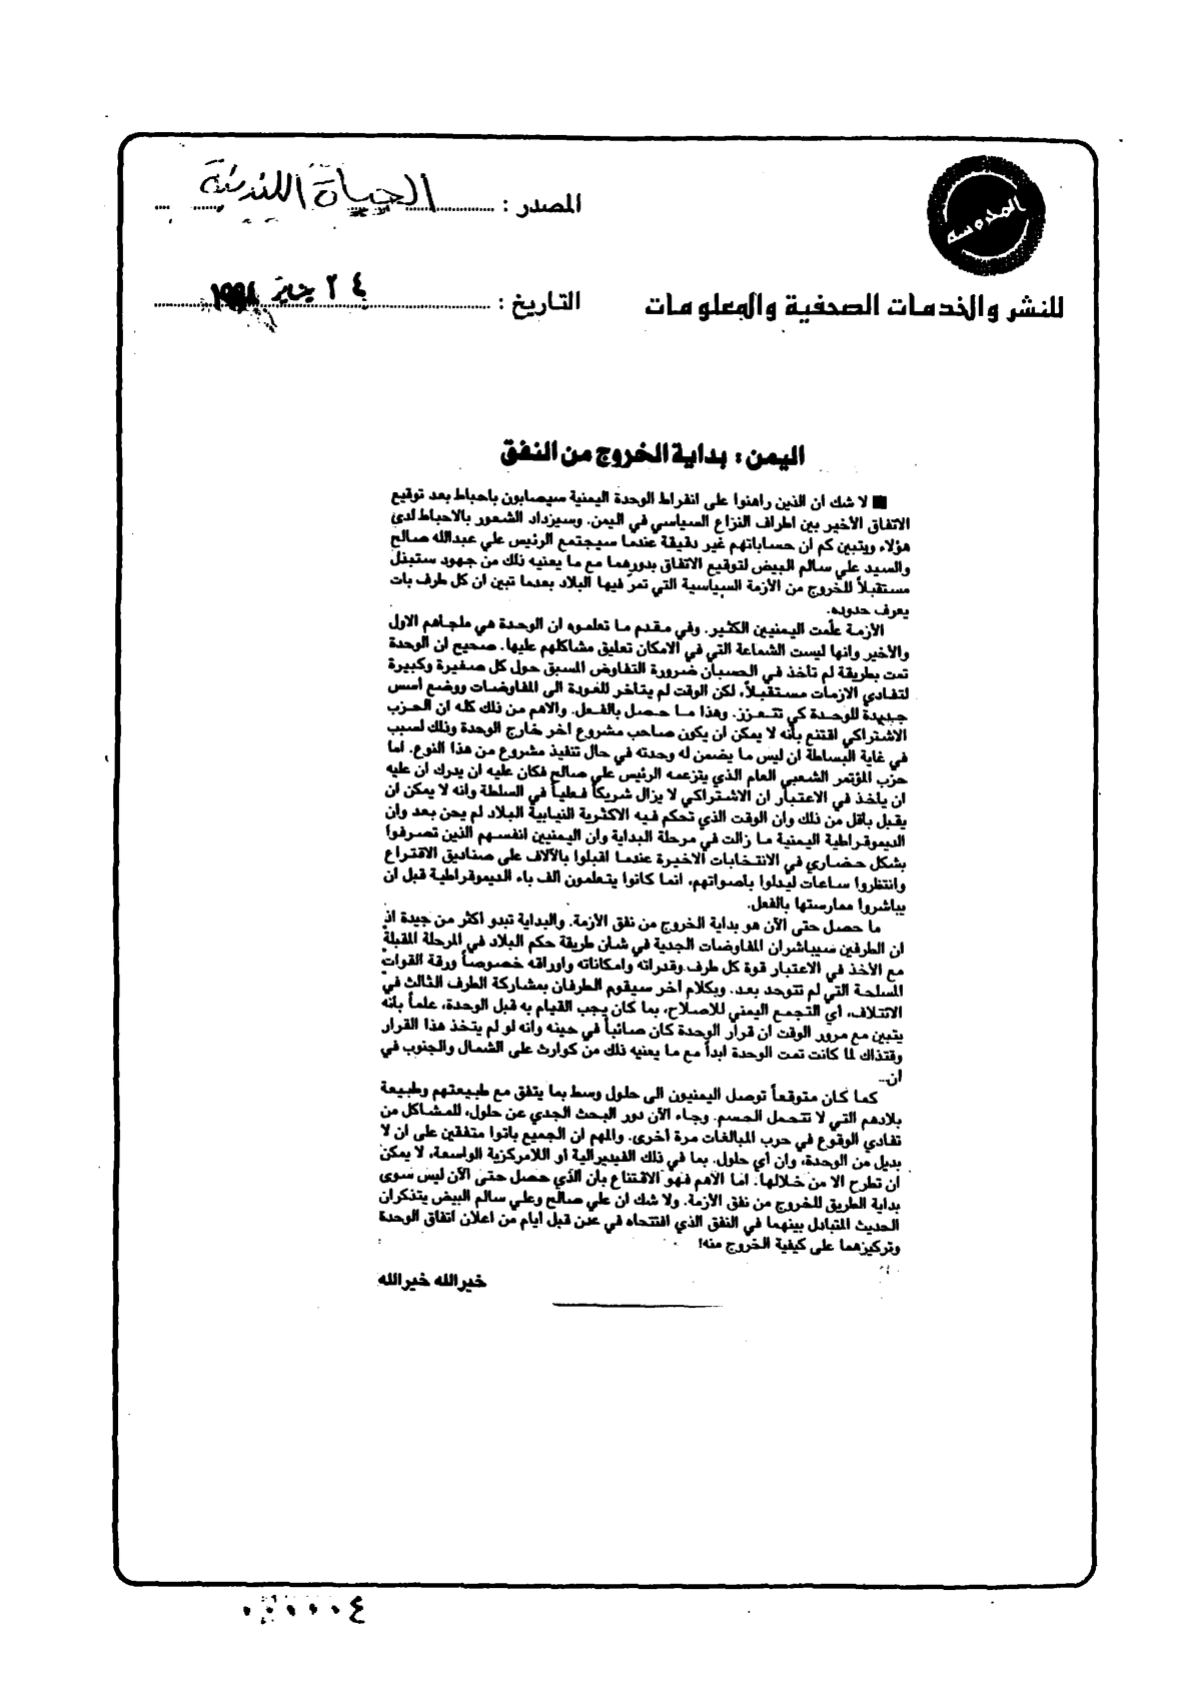 المصدر : الحياة اللندنية
المحروسة
التاريخ : ٢٤ يناير
للنشر والخدمات الصحفية والمعلومات
اليمن : بداية الخروج من النفق
■ لا شك ان الذين راهنوا على انفراط الوحدة اليمنية سيصابون باحباط بعد توقيع
الاتفاق الأخير بين اطراف النزاع السياسي في اليمن. وسيزداد الشعور بالاحباط لدى
هؤلاء ويتبين كم ان حساباتهم غير دقيقة عندما سيجتمع الرئيس علي عبدالله صالح
والسيد علي سالم البيض لتوقيع الاتفاق بدورهما مع ما يعنيه ذلك من جهود ستبذل
مستقبلاً للخروج من الأزمة السياسية التي تمرّ فيها البلاد بعدما تبين ان كل طرف بات
يعرف حدوده.
الأزمة علّمت اليمنيين الكثير. وفي مقدم ما تعلموه ان الوحدة هي ملجاهم الاول
والأخير وانها ليست الشماعة التي في الامكان تعليق مشاكلهم عليها. صحيح ان الوحدة
تمت بطريقة لم تأخذ في الحسبان ضرورة التفاوض المسبق حول كل صغيرة وكبيرة
لتفادي الازمات مستقبلاً، لكن الوقت لم يتأخر للعودة الى المفاوضات ووضع أسس
جديدة للوحدة كي تتعزز. وهذا ما حصل بالفعل. والاهم من ذلك كله ان الحزب
الاشتراكي اقتنع بأنه لا يمكن ان يكون صاحب مشروع آخر خارج الوحدة وذلك لسبب
في غاية البساطة ان ليس ما يضمن له وحدته في حال تنفيذ مشروع من هذا النوع. اما
حزب المؤتمر الشعبي العام الذي يتزعمه الرئيس علي صالح فكان عليه ان يدرك ان عليه
ان يأخذ في الاعتبار ان الاشتراكي لا يزال شريكاً فعلياً في السلطة وانه لا يمكن ان
يقبل بأقل من ذلك وان الوقت الذي تحكم فيه الاكثرية النيابية البلاد لم يحن بعد وان
الديموقراطية اليمنية ما زالت في مرحلة البداية وان اليمنيين انفسهم الذين تصرفوا
بشكل حضاري في الانتخابات الاخيرة عندما اقبلوا بالآلاف على صناديق الاقتراع
وانتظروا ساعات ليدلوا بأصواتهم، انما كانوا يتعلمون الف باء الديموقراطية قبل ان
يباشروا ممارستها بالفعل.
ما حصل حتى الآن هو بداية الخروج من نفق الأزمة. والبداية تبدو اكثر من جيدة اذ
ان الطرفين سيباشران المفاوضات الجدية في شأن طريقة حكم البلاد في المرحلة المقبلة
مع الأخذ في الاعتبار قوة كل طرف وقدراته وامكاناته واوراقه خصوصاً ورقة القوات
المسلحة التي لم تتوحد بعد. وبكلام آخر سيقوم الطرفان بمشاركة الطرف الثالث في
الائتلاف، أي التجمع اليمني للاصلاح، بما كان يجب القيام به قبل الوحدة، علماً بأنه
يتبين مع مرور الوقت ان قرار الوحدة كان صائباً في حينه وانه لو لم يتخذ هذا القرار
وقتذاك لما كانت تمت الوحدة ابداً مع ما يعنيه ذلك من كوارث على الشمال والجنوب في
آن..
كما كان متوقعاً توصل اليمنيون الى حلول وسط بما يتفق مع طبيعتهم وطبيعة
بلادهم التي لا تتحمل الحسم. وجاء الآن دور البحث الجدي عن حلول، للمشاكل من
تفادي الوقوع في حرب المبالغات مرة أخرى. والمهم ان الجميع باتوا متفقين على ان لا
بديل من الوحدة، وان أي حلول، بما في ذلك الفيديرالية او اللامركزية الواسعة، لا يمكن
ان تطرح الا من خلالها. اما الأهم فهو الاقتناع بأن الذي حصل حتى الآن ليس سوى
بداية الطريق للخروج من نفق الأزمة. ولا شك ان علي صالح وعلي سالم البيض يتذكران
الحديث المتبادل بينهما في النفق الذي افتتحاه في عدن قبل ايام من اعلان اتفاق الوحدة
وتركيزهما على كيفية الخروج منه!
خيرالله خيرالله
٠٠٠٠٠٤